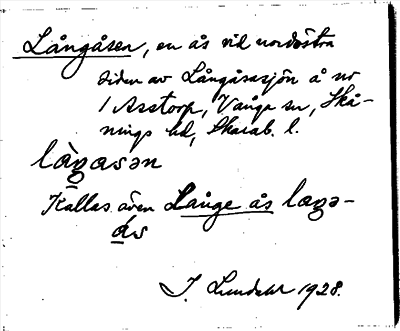 Långåsen, en ås vid nordöstra
sidan av Långåsasjön å nr
1 Asstorp, Vånga sn, Skå-
nings hd, Skarab. l.
làŋasən
Kallas även Långe ås laŋə-
ås
J. Lundahl 1928.